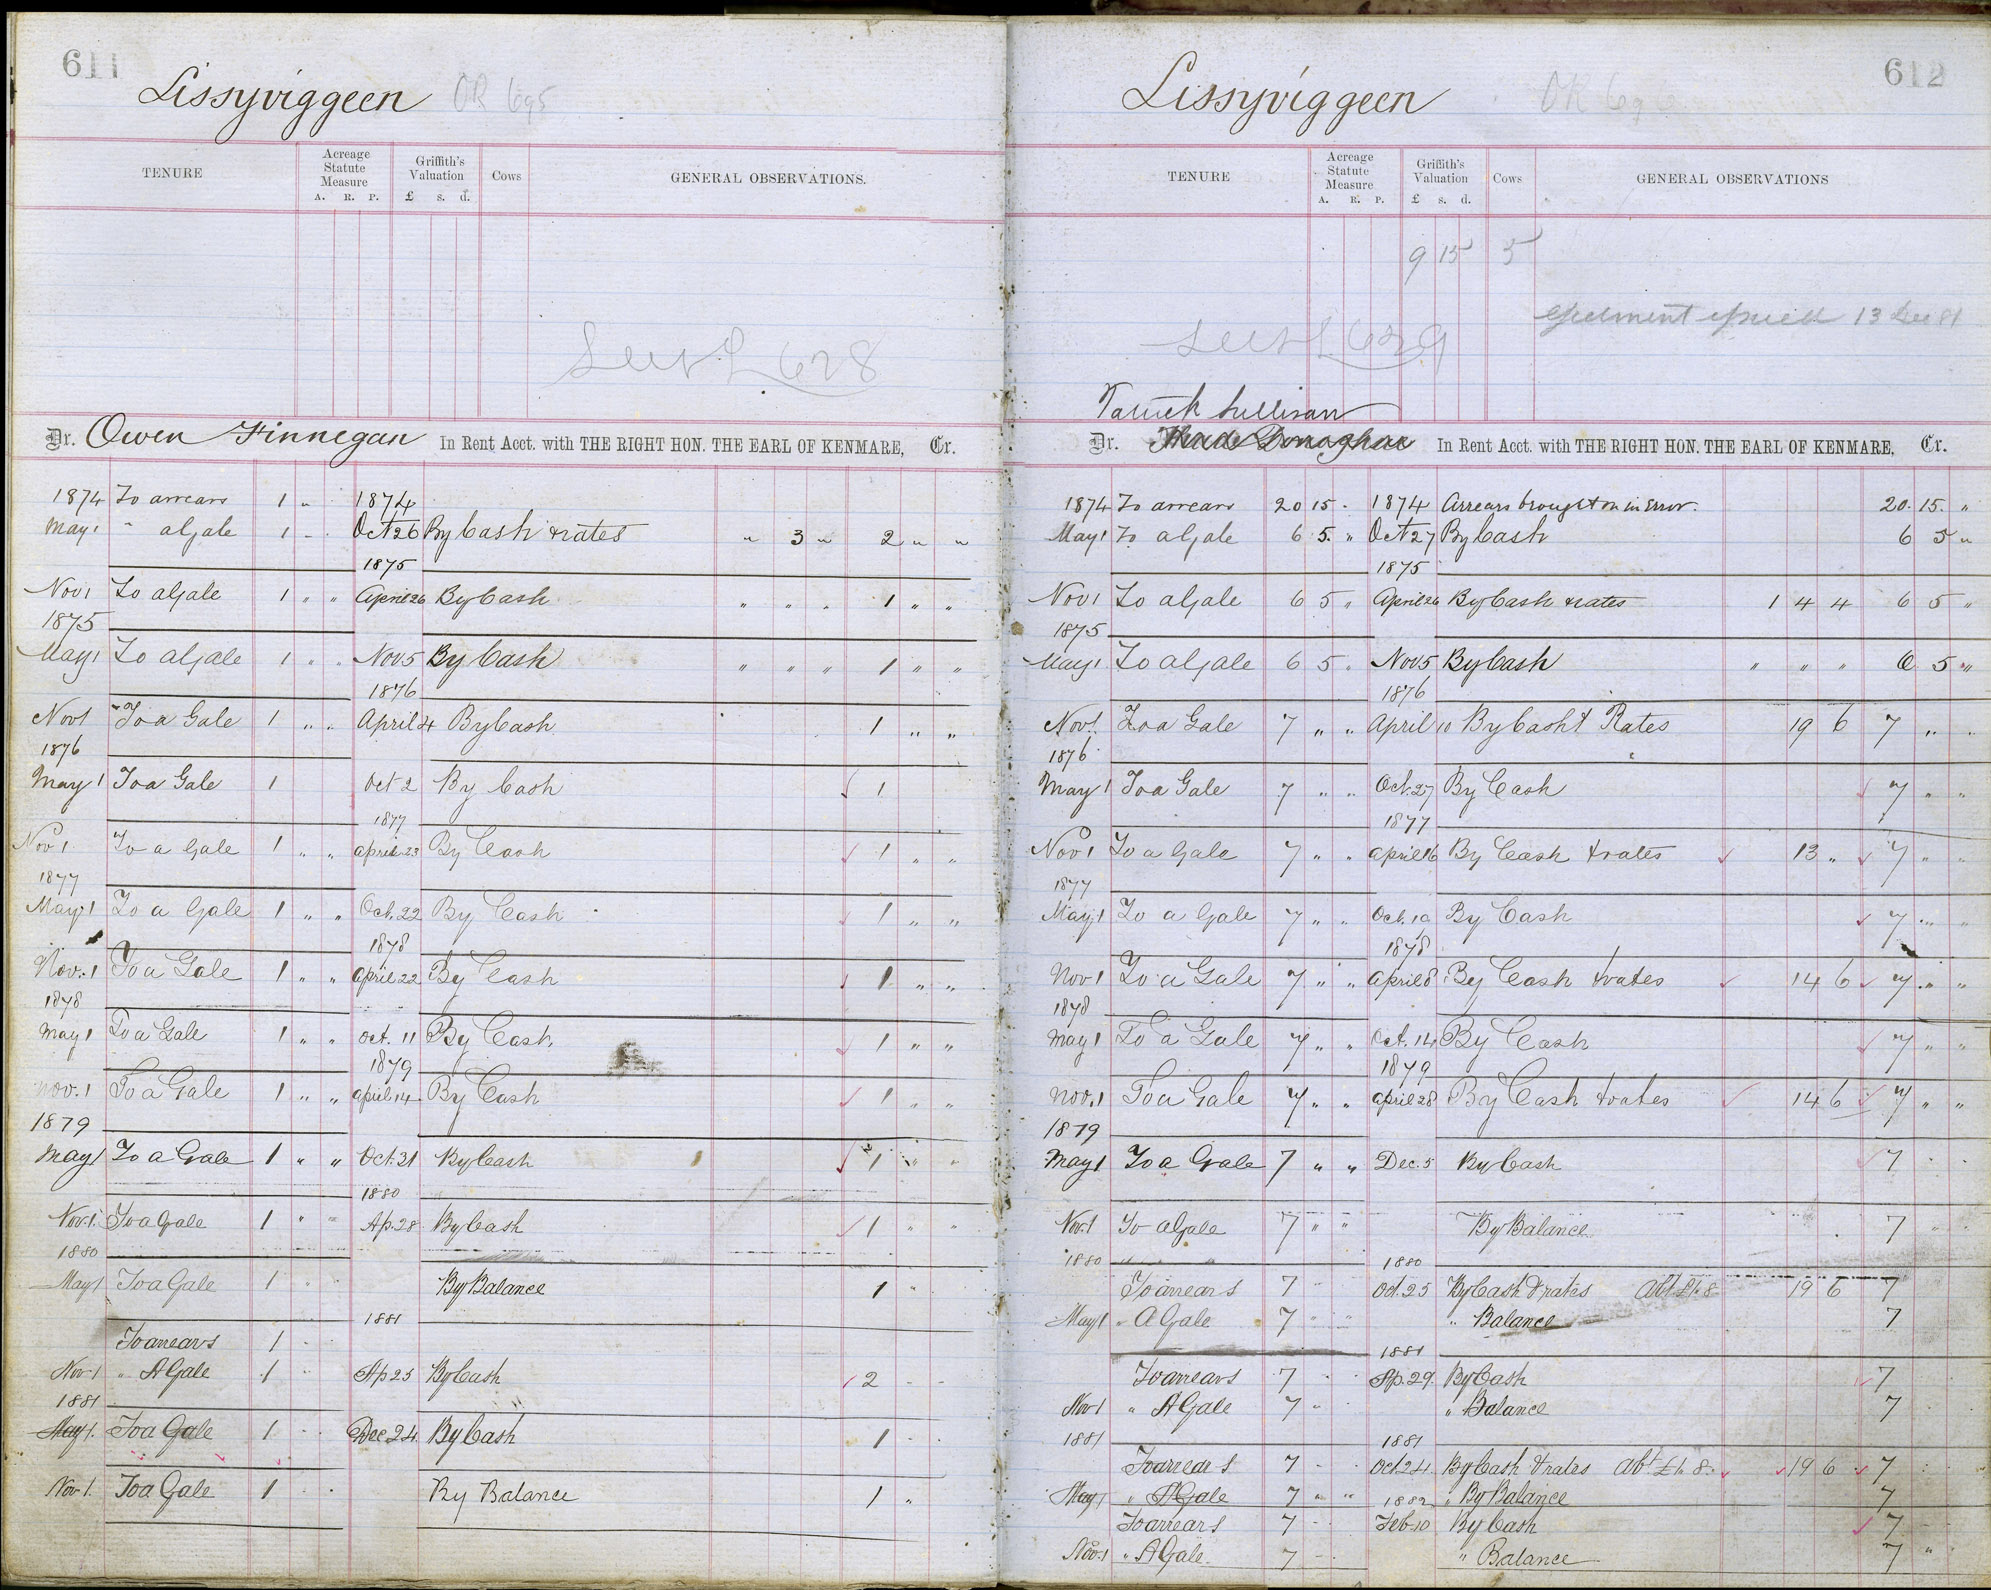 611
Lissyviggeen OR 695
TENURE Acreage Statute Measure Griffith's Valuation Cows GENERAL OBSERVATIONS.
A. R. P. £ s. d.
628
Dr. Owen Finnegan In Rent Acct. with THE RIGHT HON. THE EARL OF KENMARE, Cr.
1874 To arrears 1 " 1874
May 1 " a Gale 1 " Oct 26 By Cash & rates " 3 " 2 " "
1875
Nov 1 To a Gale 1 " " April 26 By Cash " " " 1 " "
1875
May 1 To a Gale 1 " " Nov 5 By Cash " " " 1 " "
1876
Nov 1 To a Gale 1 " " April 4 By Cash 1 " "
1876
May 1 To a Gale 1 Oct 2 By Cash 1
1877
Nov 1 To a Gale 1 " " April 23 By Cash 1 " "
1877
May 1 To a Gale 1 " " Oct. 22 By Cash 1 " "
1878
Nov. 1 To a Gale 1 " " April 22 By Cash 1 " "
1878
May 1 To a Gale 1 " " Oct. 11 By Cash. 1 " "
1879
Nov. 1 To a Gale 1 " " April 14 By Cash 1 " "
1879
May 1 To a Gale 1 " " Oct. 31 By Cash 1 " "
1880
Nov. 1 To a Gale 1 " " Ap. 28 By Cash 1 " "
1880
May 1 To a Gale 1 " " By Balance 1 "
1881
To arrears 1 "
Nov 1 " A Gale 1 " Ap 25 By Cash 2 " "
1881
May 1. To a Gale 1 " Dec 24. By Cash 1 "
Nov 1. To a Gale 1 " By Balance 1 "
612
Lissyviggeen OR 696
TENURE Acreage Statute Measure Griffith's Valuation Cows GENERAL OBSERVATIONS
A. R. P. £ s. d.
9 15 5
13 Dec 81
629
Patrick Sullivan
Dr. Donoghue In Rent Acct. with THE RIGHT HON. THE EARL OF KENMARE, Cr.
1874 To arrears 20 15 " 1874 Arrears brought on in Error. 20. 15. "
May 1 To a Gale 6 5. " Oct 27 By Cash 6 5 "
1875
Nov 1 To a Gale 6 5 " April 26 By Cash & rates 1 4 4 6 5 "
1875
May 1 To a Gale 6 5 " Nov 5 By Cash " " " 6 5 "
1876
Nov 1. To a Gale 7 " " April 10 By Cash & Rates 19 6 7 "
1876
May 1 To a Gale 7 " " Oct. 27 By Cash 7 " "
1877
Nov 1 To a Gale 7 " " April 16 By Cash & rates 13 " 7 " "
1877
May 1 To a Gale 7 " " Oct. 19 By Cash 7 " "
1878
Nov 1 To a Gale 7 " " April 8 By Cash & rates 14 6 7 " "
1878
May 1 To a Gale 7 " " Oct. 14 By Cash 7 " "
1879
Nov. 1 To a Gale 7 " " April 28 By Cash & rates 14 6 7 " "
1879
May 1 To a Gale 7 " " Dec. 5 By Cash 7 " "
Nov. 1 To a Gale 7 " " By Balance 7 "
1880 1880
To arrears 7 " Oct. 25 By Cash & rates 19 6 7
May 1 " A Gale 7 " " " Balance 7
1881
To arrears 7 " Ap. 29. By Cash 7
Nov 1 " A Gale 7 " " Balance 7
1881 1881
To arrears 7 " Oct 24. By Cash & rates 19 6 7
May 1 " A Gale 7 " " 1882 " By Balance 7
To arrears 7 " Feb 10 By Cash 7 "
Nov. 1 " A Gale. 7 " " Balance 7 "